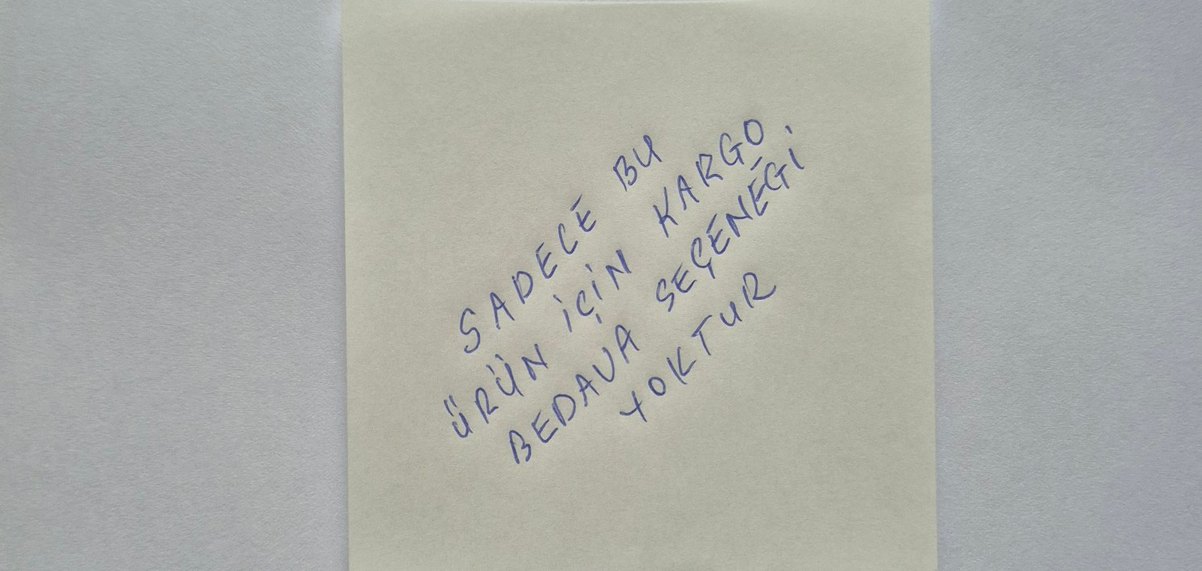 SADECE BU
ÜRÜN İÇİN KARGO
BEDAVA SEÇENEĞİ
YOKTUR